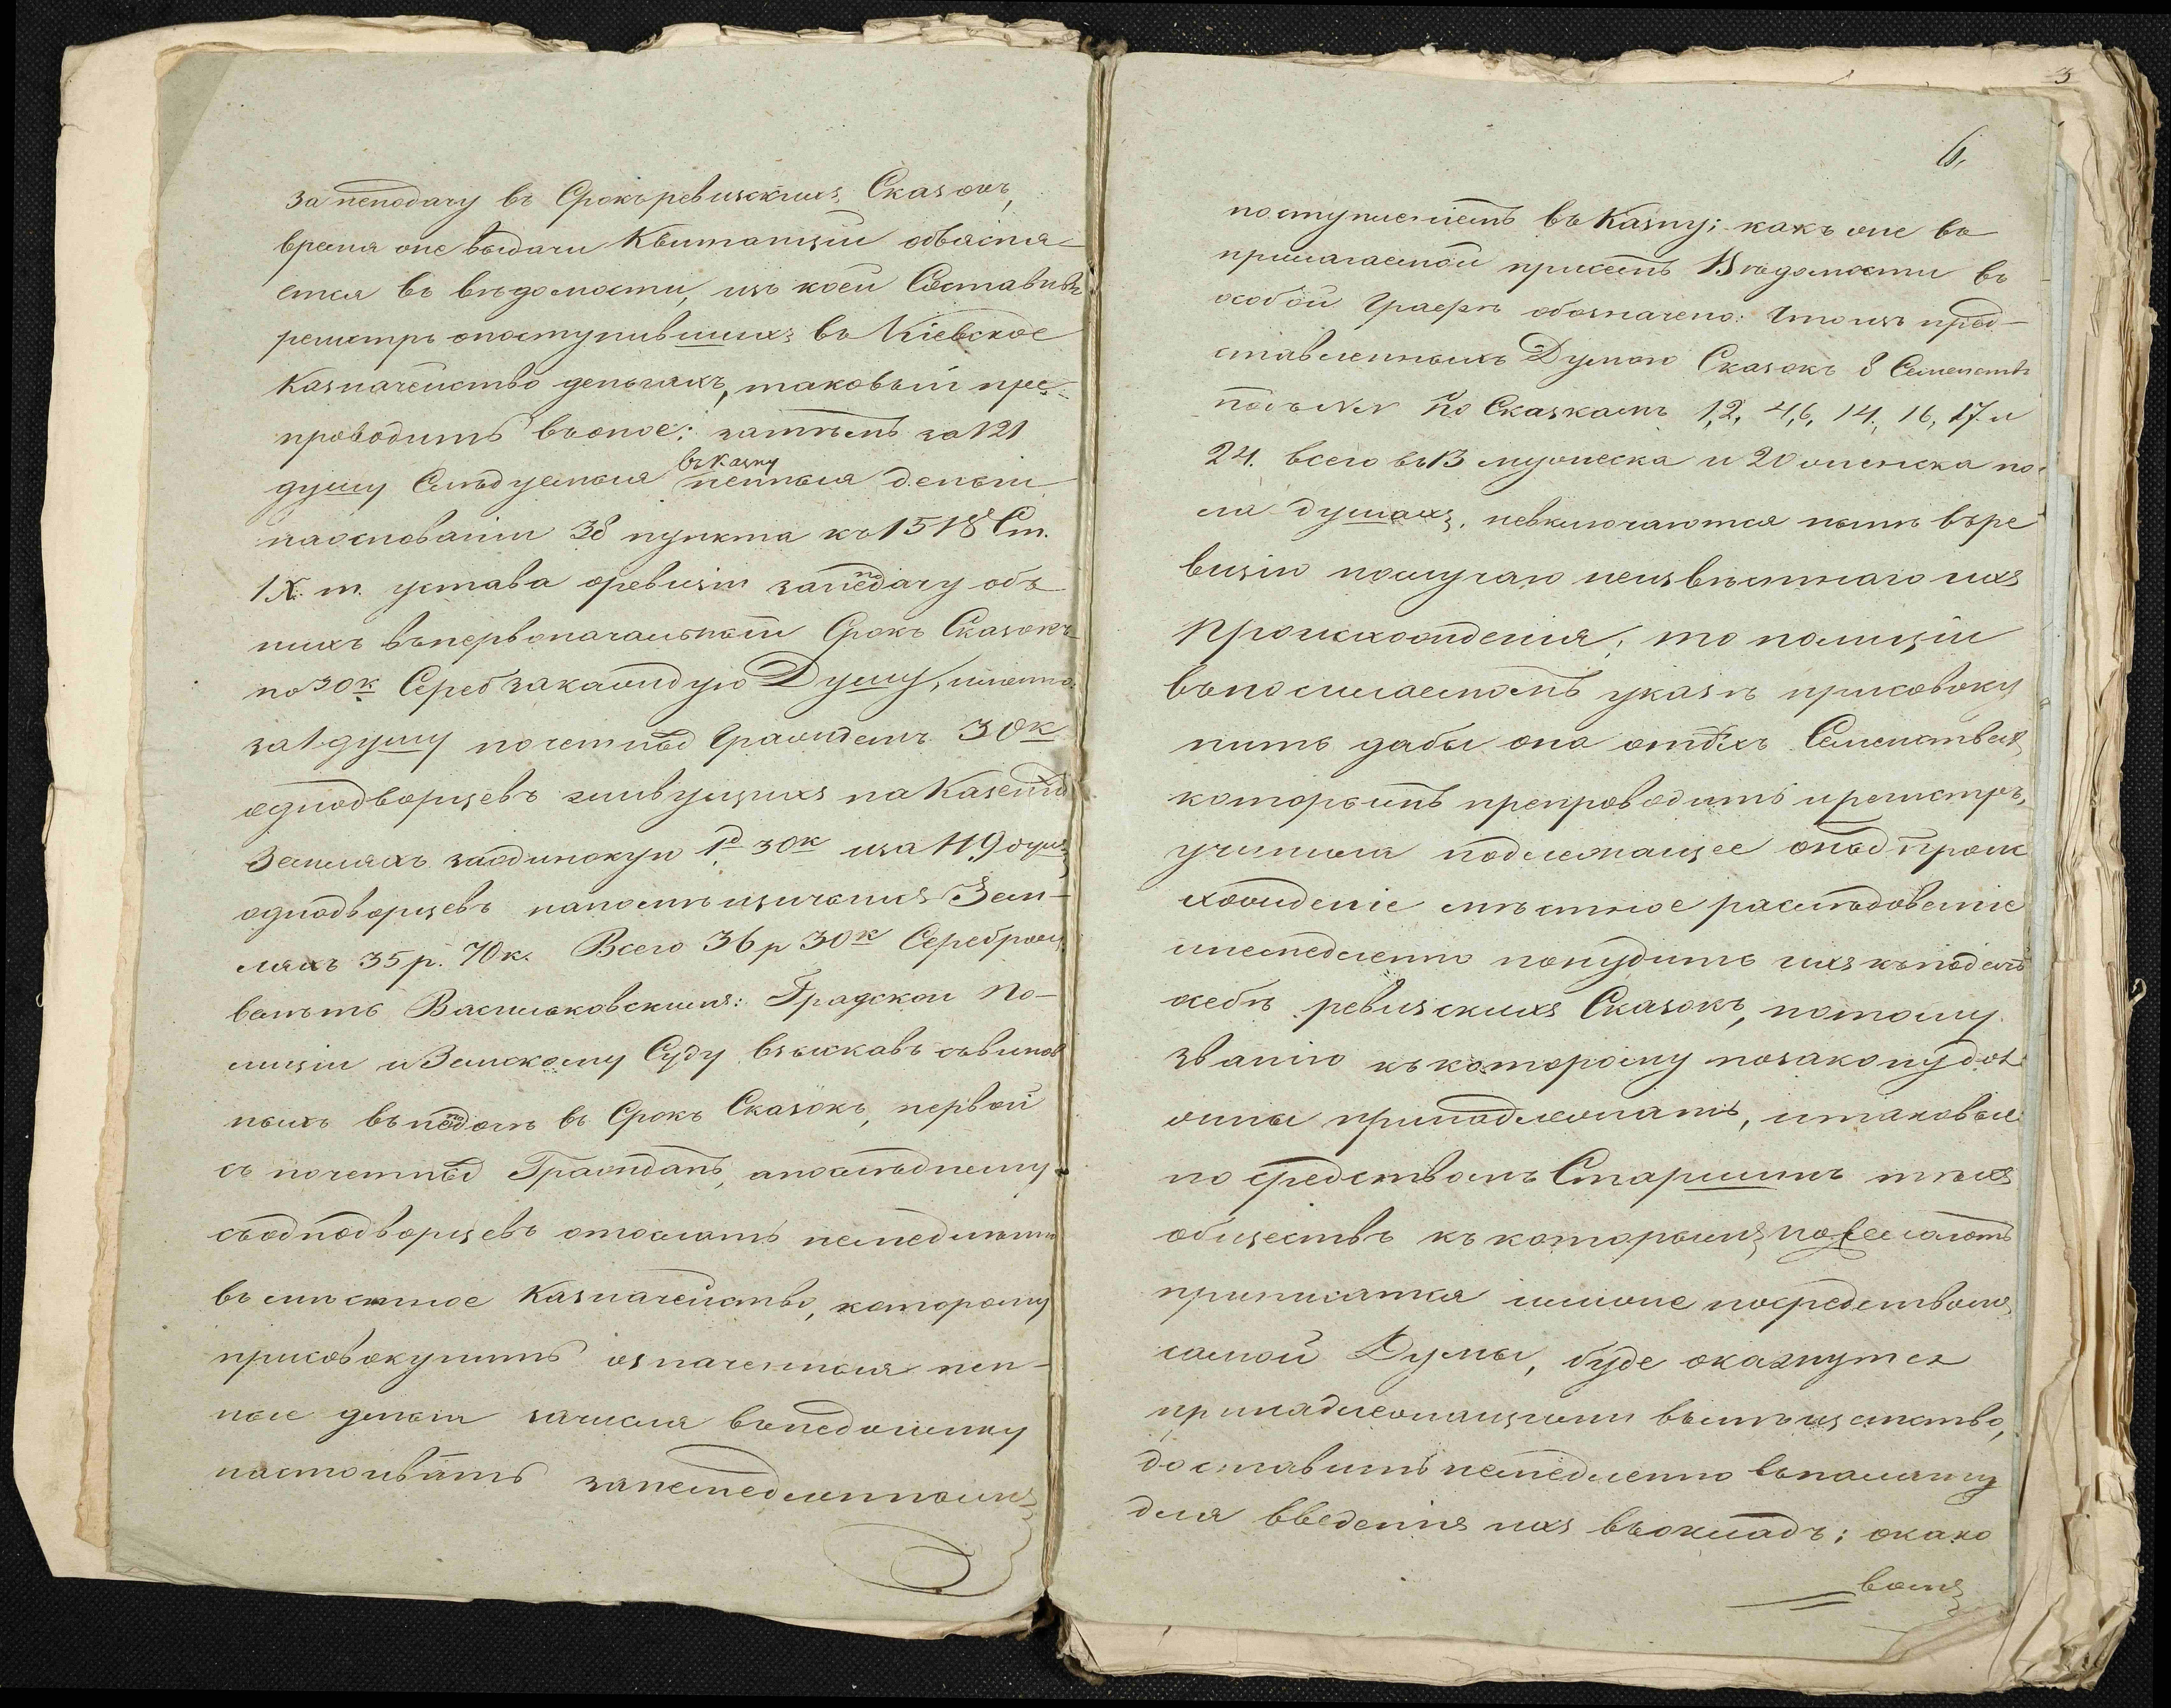 за неподачу въ Срокъ ревизскихъ Сказокъ,
время оне выдачи Квитанціи объясня-
ется въ вѣдомости, изъ коей Составивъ
регистръ опоступившихъ въ Кіевское
Казначейство деньгахъ, таковый пре-
проводить въоное; затѣмъ за 121
душу Слѣдуемыя въ Казну пенныя деньги
наоснованіи 38 пункта къ 1518 Ст.
IX. т. устава оревизіи занеподачу объ
нихъ въпервоначальный Срокъ Сказокъ
по 30к Сереб закаждую Душу, именно:
за 1 душу почетныхъ Гражданъ 30к
однодворцевъ живущихъ на Казенныхъ
Земляхъ заодинокую 1д 30к иза 119 душъ
однодворцевъ напомѣщичьихъ Зем-
ляхъ 35 р. 70 к. Всего 36 р 30к Серебромъ
велѣть Васильковскимъ: Градской По-
лиціи и Земскому Суду взыскавъ съвинов
ныхъ въ неподачѣ въ Срокъ Сказокъ, первой
съ почетныхъ Гражданъ, апослѣднему
съоднодворцевъ отослать немедленно
въ мѣстное Казначейство, которому
присовокупить означенныя пен-
ные деньги зачисля внедоимку
настоивать занемедленнымъ
3
6,
поступленіемъ въ Казну; какъ оне въ
прилагаемой присемъ Вѣдомости въ
особой Графѣ обозначено: Что изъ пред-
ставленныхъ Думою Сказокъ 8 Семействъ
подъ №№ по Сказкамъ 1, 2, 4, 6, 14, 16, 17 и
24. всего въ 13 мужеска и 20 женска по-
ла душахъ, невключаются нынѣ въре
визію послучаю неизвѣстнаго ихъ
происхожденія; то полиціи
въпосылаемомъ указѣ присовоку
пить дабы она отѣхъ Семействахъ,
которымъ препроводить ирегистръ,
учинила подлежащее оныхъ проис
хожденіе мѣстное разслѣдованіе
инемедленно понудить ихъ къподачѣ
осебѣ ревизскихъ Сказокъ, потому
званію къкоторому позакону дол
жны принадлежать, итаковые
по средствомъ Старшинъ тѣхъ
обществъ къ которымъ пожелаютъ
приписатся илиже посредствомъ
самой Думы, буде окажутся
принадлежащими въмѣщанство,
доставить немедленно въпалату
для введенія ихъ въокладъ; окако
вомъ